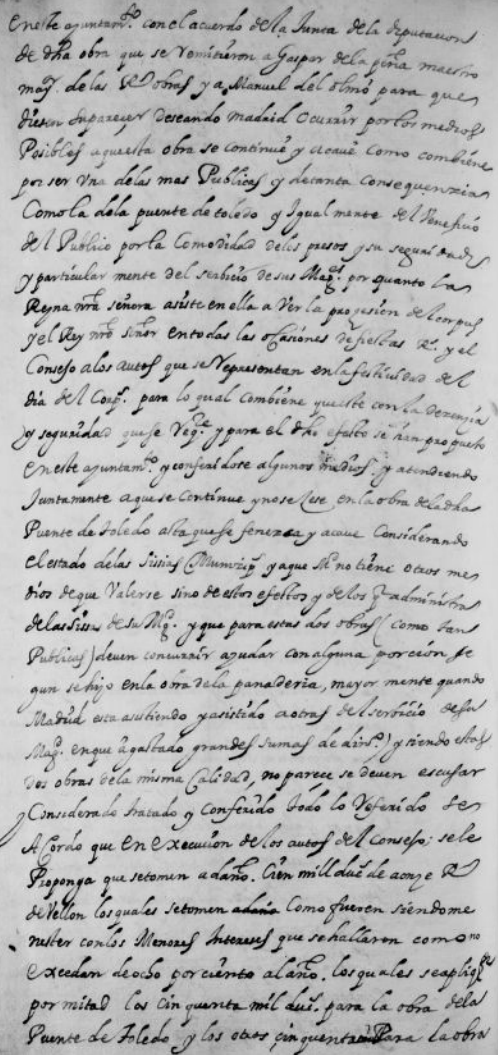 En este ayuntamto. con el acuerdo de la Junta de la diputacion
de dha obra que se Remitieron a Gaspar de la peña maestro
mayr. de las Rs obras y a Manuel del olmo para que
diesen su pareçer deseando Madrid Ocurrir por los medios
Posibles a que esta obra se continue y acave como combiene
por ser Una de las mas Publicas y de tanta consequenzia
Como la de la puente de toledo y Igualmente del Venefiçio
del Publico por la Comodidad de los presos y su seguridad
y particular mente del serbicio de sus Mags. por quanto la
Reyna nra señora asiste en ella a Ver la prozesion del corpus
y el Rey nro señor en todas las ocasiones de fiestas Rs. y el
Consejo a los autos que se Representan en la festiuidad del
dia del Corps. para lo qual combiene que este con la dezençia
y seguridad que se Reqe. y para el dho efecto se han propuesto
en este ayuntamto. y conferidose algunos medios. y atendiendo
Juntamente a que se Continue y no se zese en la obra de la dha
Puente de toledo asta que se fenezca y acave Considerando
el estado de las sisas y que Md. no tiene otros me
dios de que Valerse sino de estos efectos y de los q administra
de las sisas de su Mgd. y que para estas dos obras (como tan
Publicas) deven concurrir ayudar con alguna porcion se
gun se hizo en la obra de la panaderia, mayor mente quando
Madrid esta asistiendo y asistido a otras del serbicio de su
Magd. en que a gastado grandes sumas de dinro.) y siendo estas
dos obras de la misma Calidad, no parece se deven escusar
y Considerado tratado y Conferido todo lo Referido se
Acordo que en execucion de los autos del consejo; se le
Proponga que se tomen a daño. Cien mill dus de a onze Rs
de Vellon los quales se tomen a daño Como fueren siendo me
nester con los Menores Intereses que se hallaren como no
excedan de ocho por ciento al año. los quales se aplique
por mitad los cinquenta mil dus. para la obra de la
Puente de Toledo y los otros cinquenta Para la obra